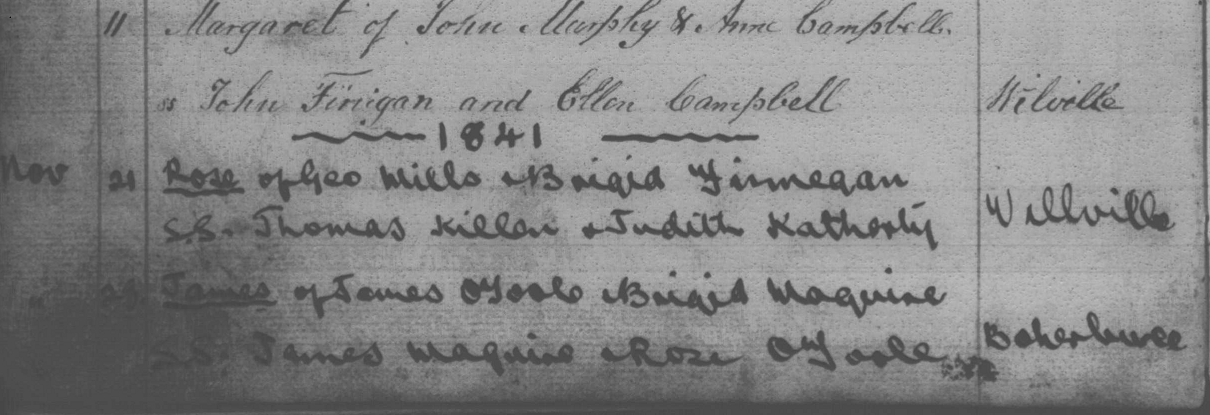 11 Margaret of John Murphy & Anne Campbell.
ss John Finigan and Ellen Campbell Wilville
1841
Nov 21 Rose of Geo Mills & Brigid Finnegan
S.S. Thomas Killen & Judith Katherty Willville
" James of James O'Toole & Brigid Maguire
S.S. James Maguire & Rose O'Toole